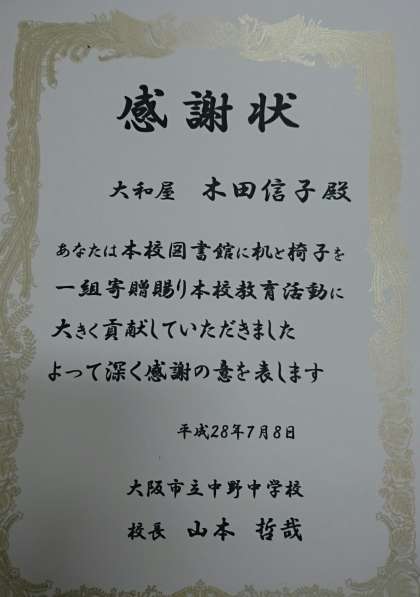 感謝状
大和屋 木田信子殿
あなたは本校図書館に机と椅子を
一組寄贈賜り本校教育活動に
大きく貢献していただきました
よって深く感謝の意を表します
平成28年7月8日
大阪市立中野中学校
校長 山本 哲哉